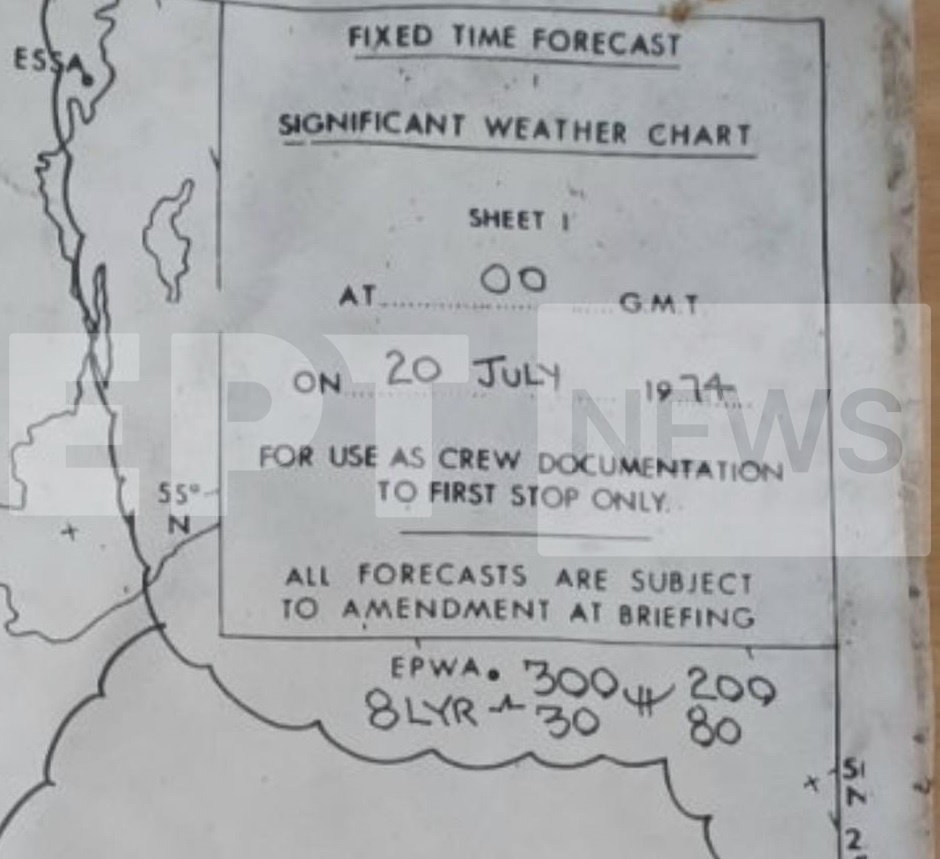 FIXED TIME FORECAST
ESSA
SIGNIFICANT WEATHER CHART
SHEET 1
AT 00 G.M.T.
ON 20 JULY 1974
ΕΡΤ NEWS
FOR USE AS CREW DOCUMENTATION
55°
TO FIRST STOP ONLY.
N
ALL FORECASTS ARE SUBJECT
TO AMENDMENT AT BRIEFING
EPWA. 300 200
8LYR 30 80
51
N
2